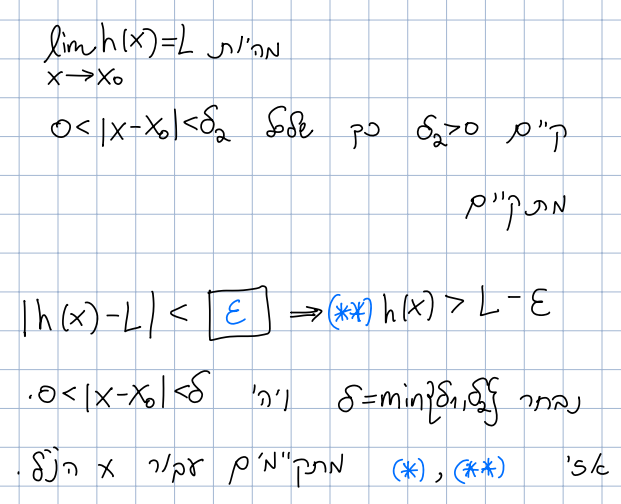 מהיות lim h(x)=L
x→x₀
קיים δ₂>0 כך שלכל 0<|x-x₀|<δ₂
מתקיים
|h(x)-L| < ε ⇒ (**) h(x) > L-ε
נבחר δ=min{δ₁,δ₂} ויהי 0<|x-x₀|<δ.
אזי (*), (**) מתקיימים עבור x הנ"ל.